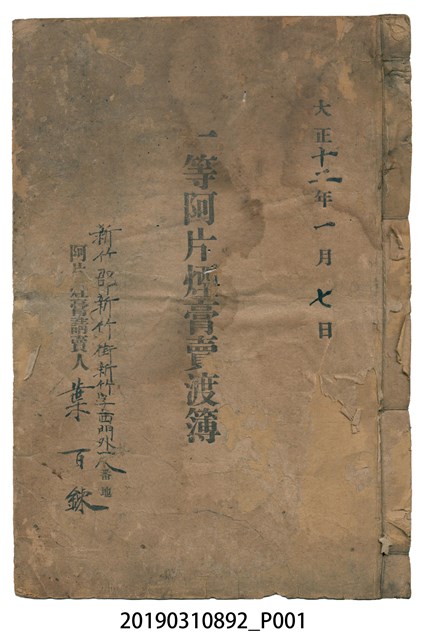 大正十二年一月七日
一等阿片煙膏賣渡簿
新竹郡新竹街新竹字西門外八番地
阿片煙膏請賣人 葉百鍊
20190310892_P001